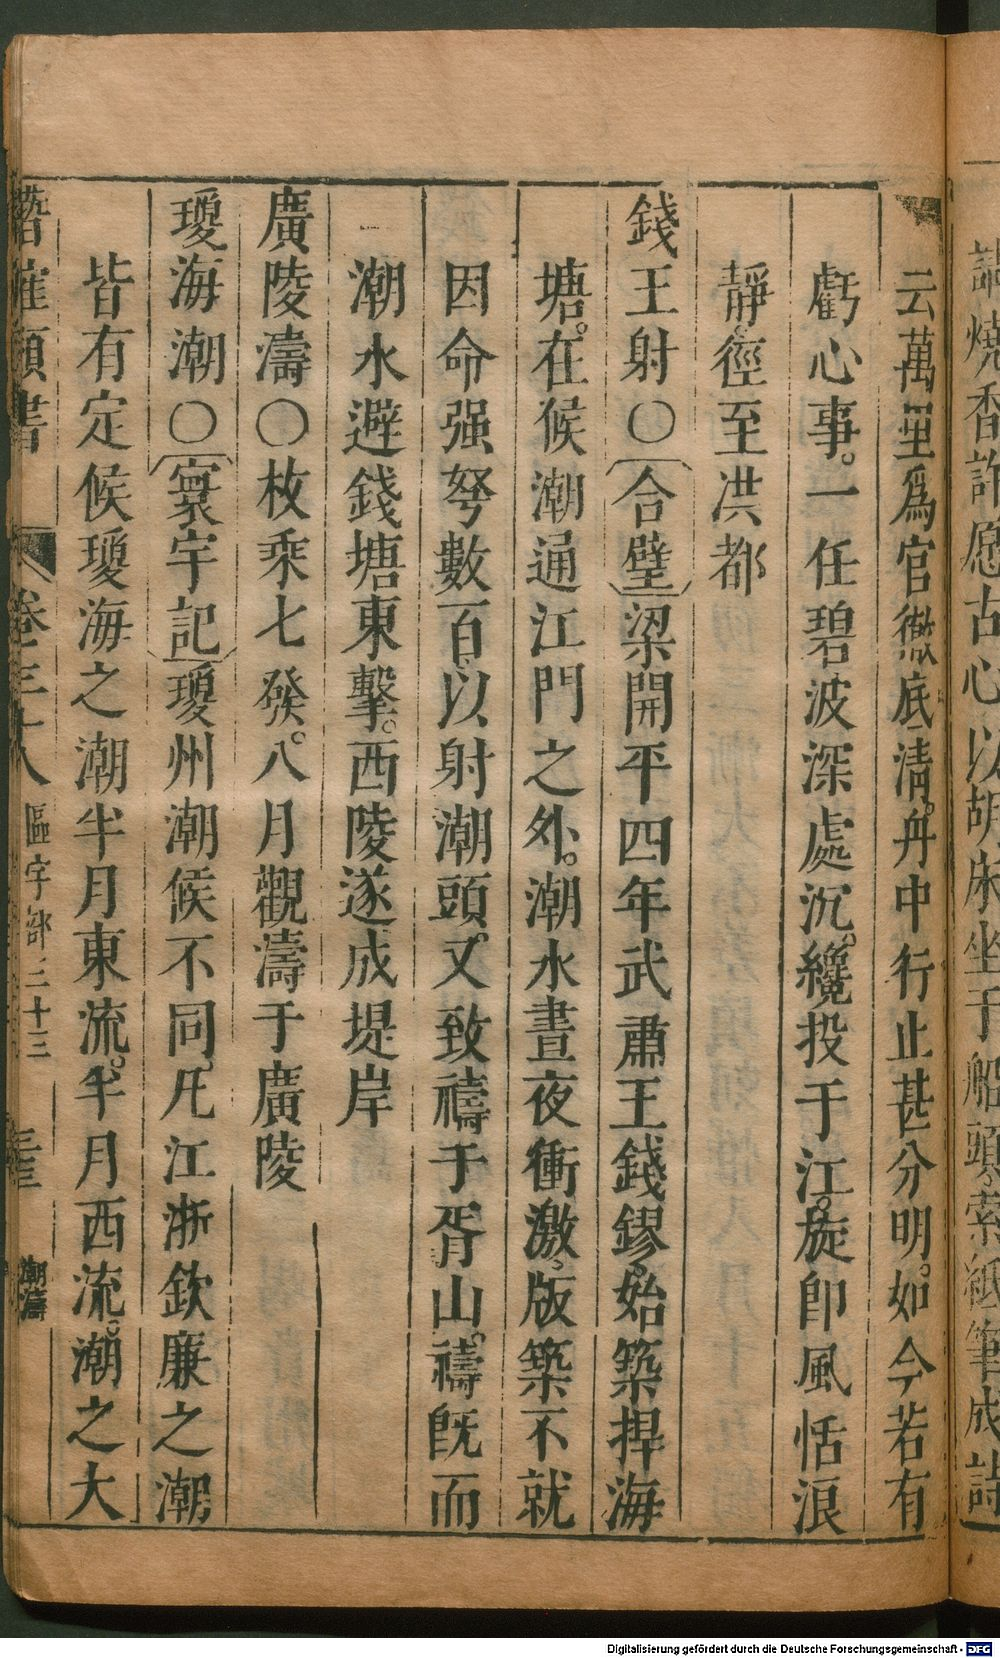 詩燒香許愿古心以胡床坐于船頭索紙筆成詩
云萬里爲官徹底清。舟中行止甚分明。如今若有
虧心事。一任碧波深處沉。纔投于江。旋卽風恬浪
靜。徑至洪都
錢王射〇〔合璧〕梁開平四年武肅王錢鏐。始築捍海
塘。在候潮通江門之外。潮水晝夜衝激。版築不就
因命强弩數百。以射潮頭。又致禱于胥山。禱旣而
潮水避錢塘東擊。西陵遂成堤岸
廣陵濤〇枚乘七發。八月觀濤于廣陵
瓊海潮〇〔寰宇記〕瓊州潮候不同。凡江浙欽廉之潮
皆有定候瓊海之潮半月東流。半月西流。潮之大
卷三十八 區宇部三十三 潮濤
Digitalisierung gefördert durch die Deutsche Forschungsgemeinschaft - DFG